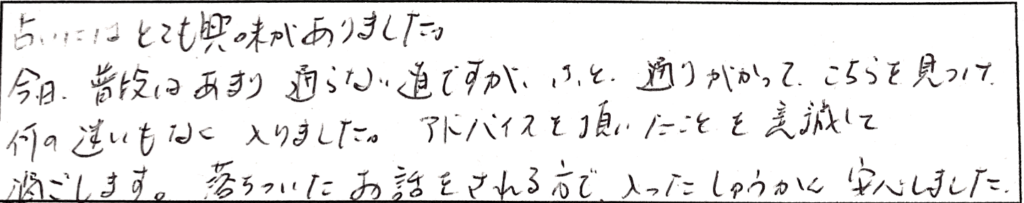 占いにはとても興味がありました。
今日、普段はあまり通らない道ですが、ふと、通りがかって、こちらを見つけ、
何の迷いもなく入りました。アドバイスを頂いたことを意識して
過ごします。落ちついたお話をされる方で、入ったしゅうかん安心しました。